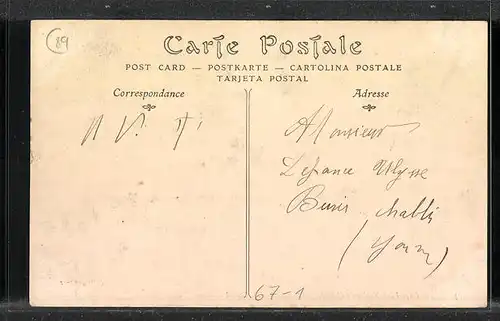 89
Carte Postale
POST CARD — POSTKARTE — CARTOLINA POSTALE
TARJETA POSTAL
Correspondance
Adresse
Monsieur
Lefrance Ulysse
Chabli
(Yonne)
67-1